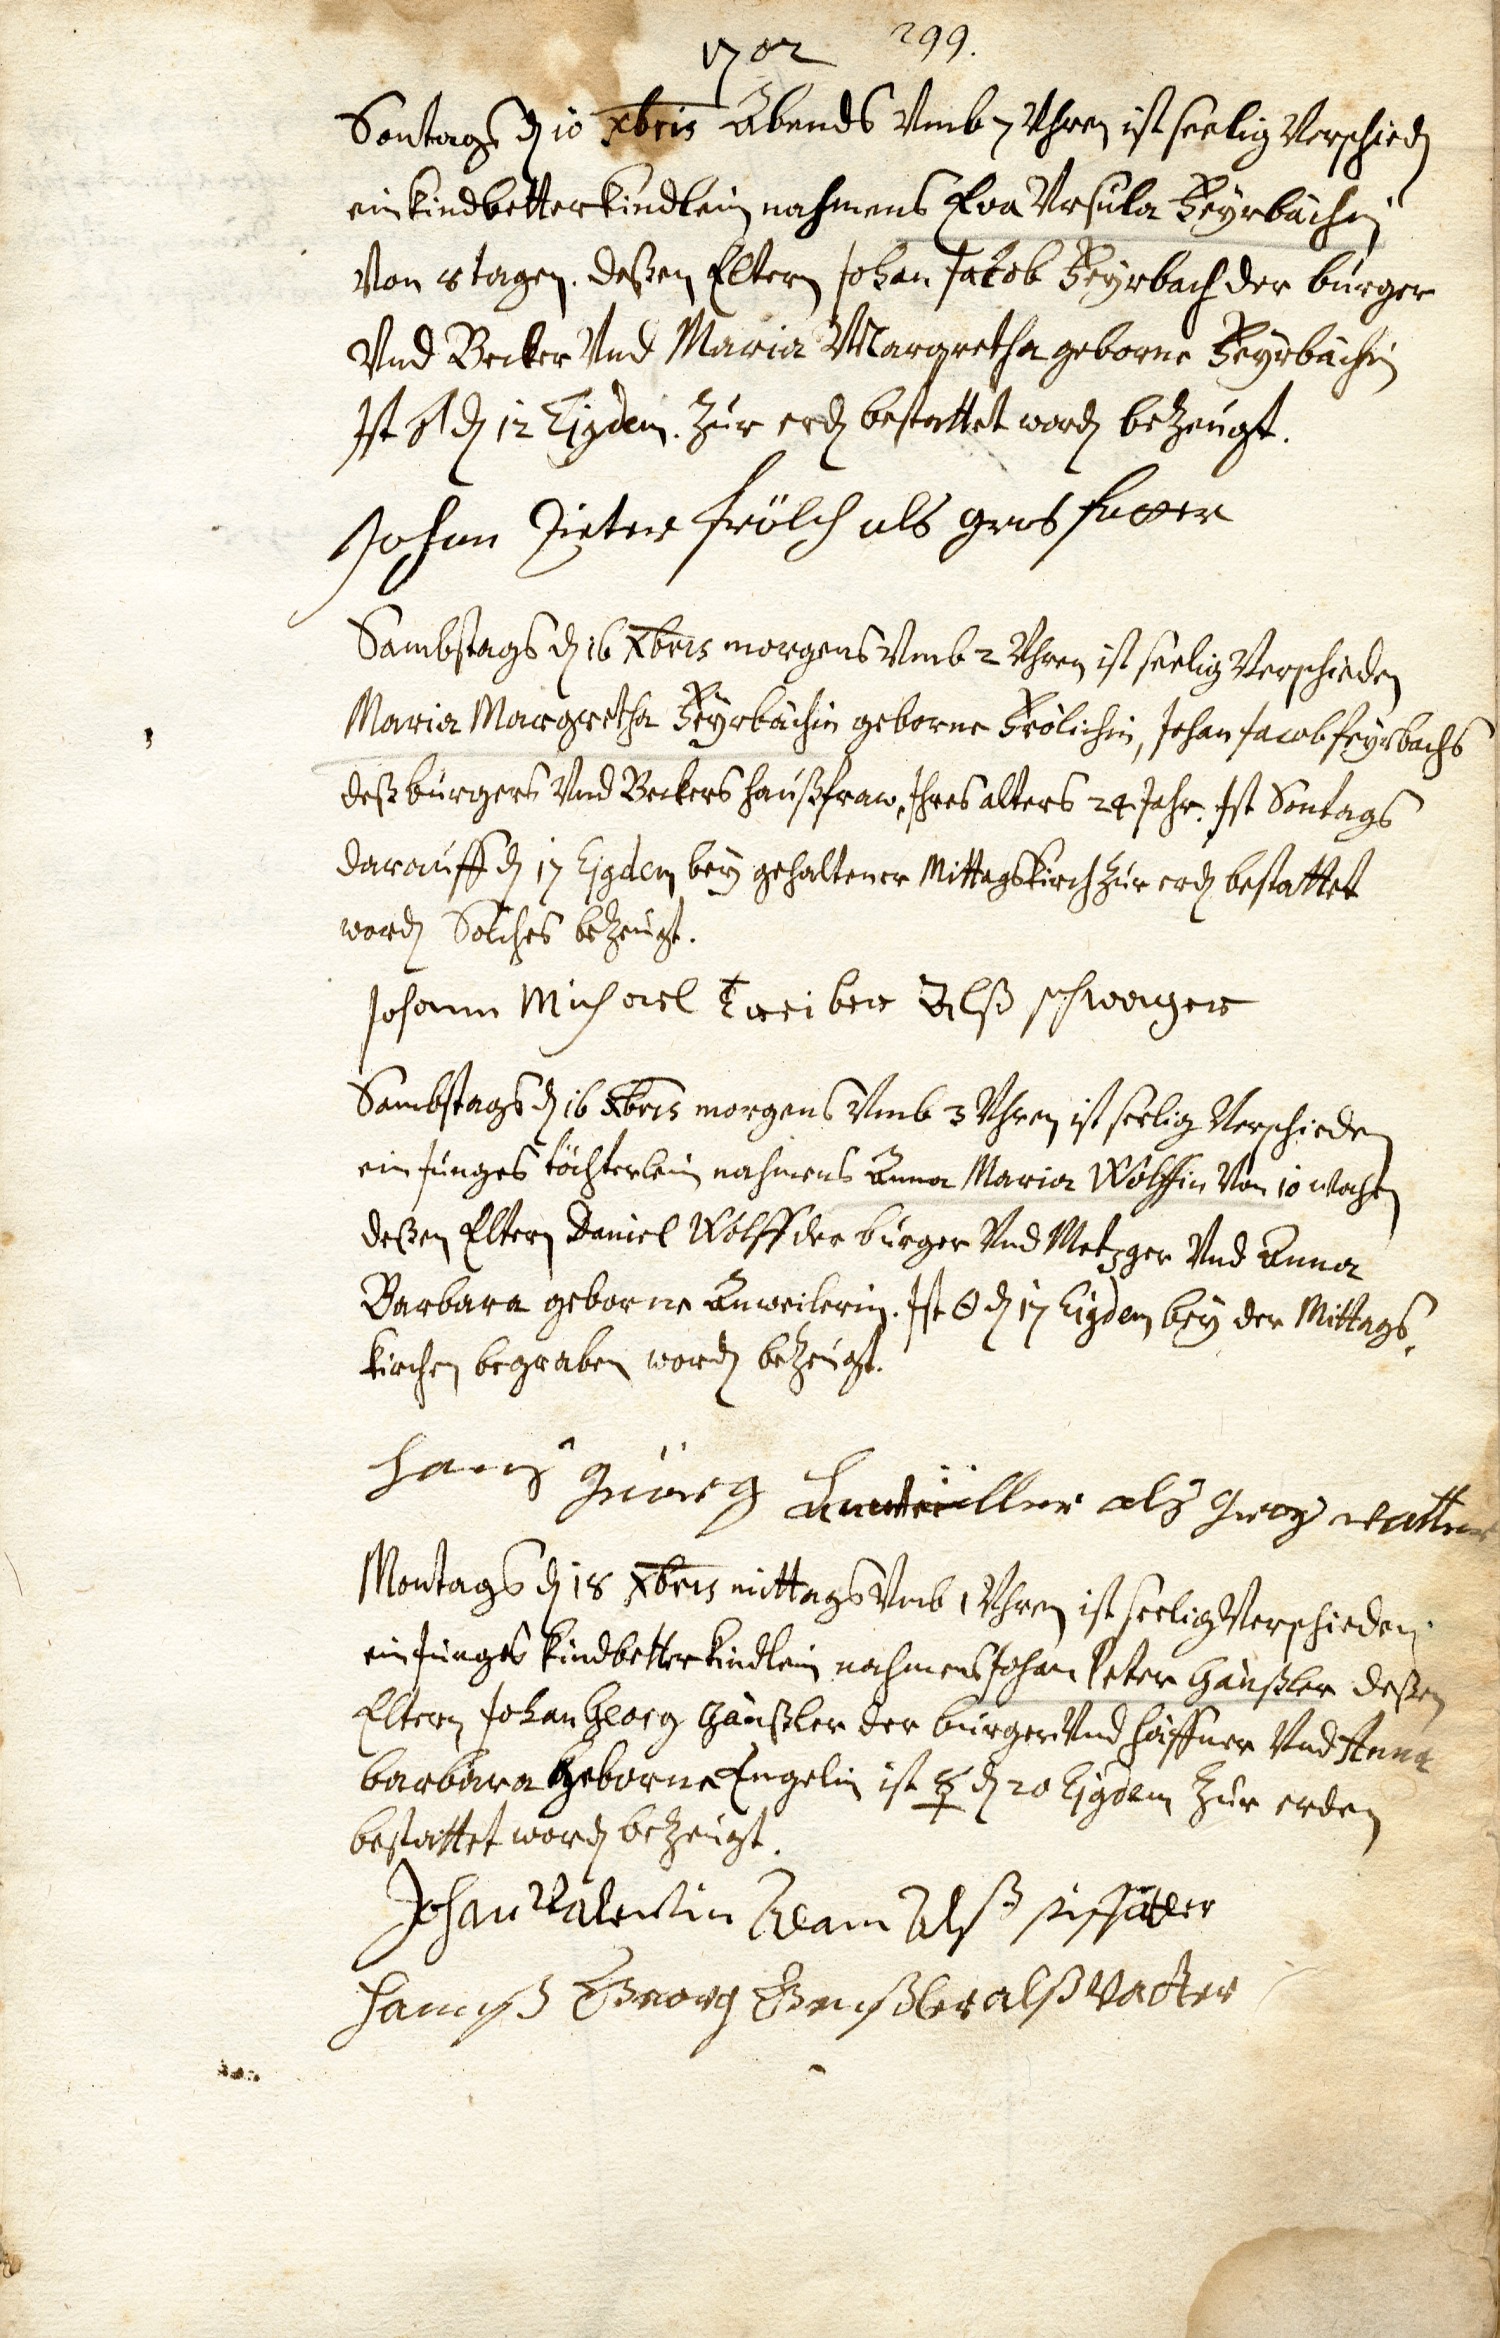 1702 299.
Sontags d 10 Xbris Abends Vmb 7 Vhren ist seelig Verschied
ein Kindbetterkindlein nahmens Eva Ursula Feÿrbächin
Von 8 tagen. deßen Eltern Johan Jacob Feÿrbach der burger
Vnd Becker Vnd Maria Margretha geborne Feÿrbächin
Ist ♂ d 12 Ejgdem. Zur erd bestattet word bezeugt.
Johan Dieter frölch als gros fatter
Sambstags d 16 Xbris morgens Vmb 2 Vhren ist seelig Verschieden
Maria Margretha Feÿrbächin geborne Frölichin, Johan Jacob feÿrbachs
deß burgers Vnd Beckers haußfraw, Ihres alters 24 Jahr. Ist Sontags
darauff d 17 Ejgdem beÿ gehaltener Mittagskirch zur erd bestattet
word Solches bezeugt.
Johann Michael Treiber Alß schwager
Sambstags d 16 Xbris morgens Vmb 3 Vhren ist seelig Verschieden
ein Junges töchterlein nahmens Anna Maria Wolffin Von 10 wochen
deßen Eltern Daniel Wolff der burger Vnd Metzger Vnd Anna
Barbara geborne Anweilerin. Ist ☉ d 17 Ejgdem beÿ der Mittags
kirchen begraben word bezeugt.
hans Göorg als Gros vatter
Montags d 18 Xbris mittags Vmb 1 Vhren ist seelig Verschieden
ein Junges Kindbetterkindlein nahmens Johan Peter Häußler deßen
Eltern Johan Georg Häußler der burger Vnd häffner Vnd Anna
barbara geborne Engelin ist ☿ d 20 Ejgdem zur erden
bestattet word bezeugt.
Johan Valentin Adam Alß
Hannß Georg alß Vatter